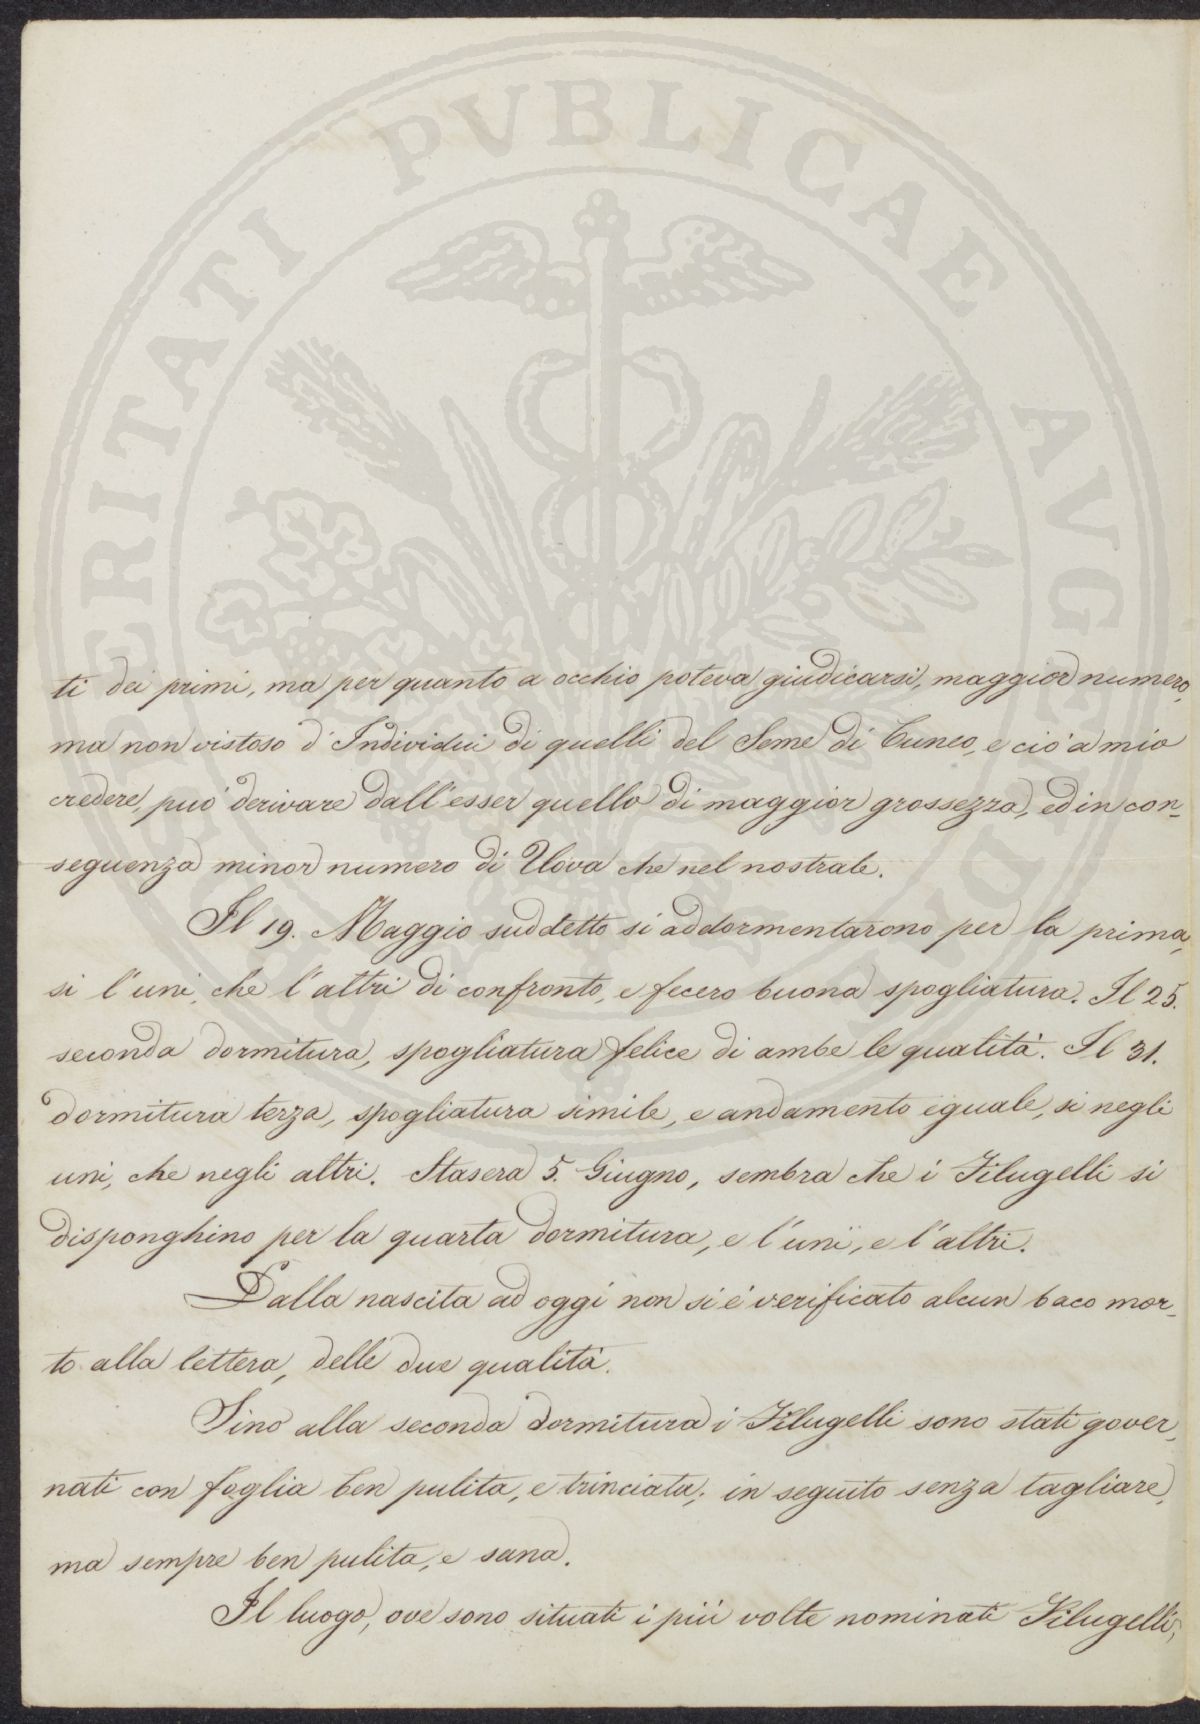 PROSPERITATI PUBLICAE AVGENDAE
ti dei primi, ma per quanto a occhio poteva giudicarsi, maggior numero,
ma non vistoso d'Individui di quelli del Seme di Cuneo, e ciò a mio
credere, può derivare dall'esser quello di maggior grossezza, ed in con-
seguenza minor numero di Uova che nel nostrale.
Il 19. Maggio suddetto si addormentarono per la prima,
si l'uni, che l'altri di confronto, e fecero buona spogliatura. Il 25.
seconda dormitura, spogliatura felice di ambe le qualità. Il 31.
dormitura terza, spogliatura simile, e andamento eguale, si negli
uni, che negli altri. Stasera 5. Giugno, sembra che i Filugelli si
disponghino per la quarta dormitura, e l'uni, e l'altri.
Dalla nascita ad oggi non si è verificato alcun baco mor-
to alla lettera, delle due qualità.
Sino alla seconda dormitura i Filugelli sono stati gover-
nati con foglia ben pulita, e trinciata; in seguito senza tagliare,
ma sempre ben pulita, e sana.
Il luogo, ove sono situati i più volte nominati Filugelli,